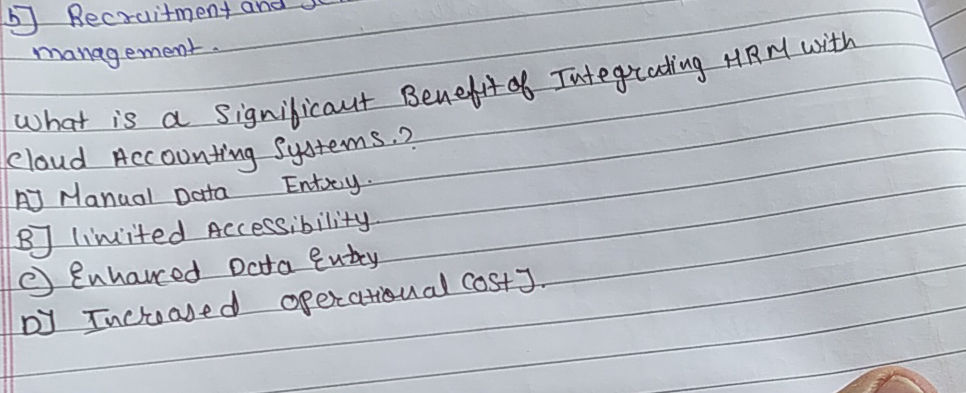 5] Recruitment and
management.
What is a Significant Benefit of Integrating HRM with
Cloud Accounting Systems.?
A] Manual Data Entry.
B] limited Accessibility.
C) Enhanced Data Entry
D] Increased operational Cost].